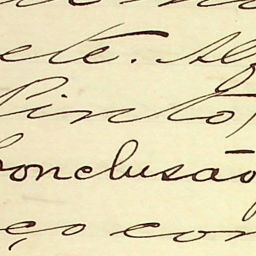 ete. Al
Pinto,
conclusão
ço con